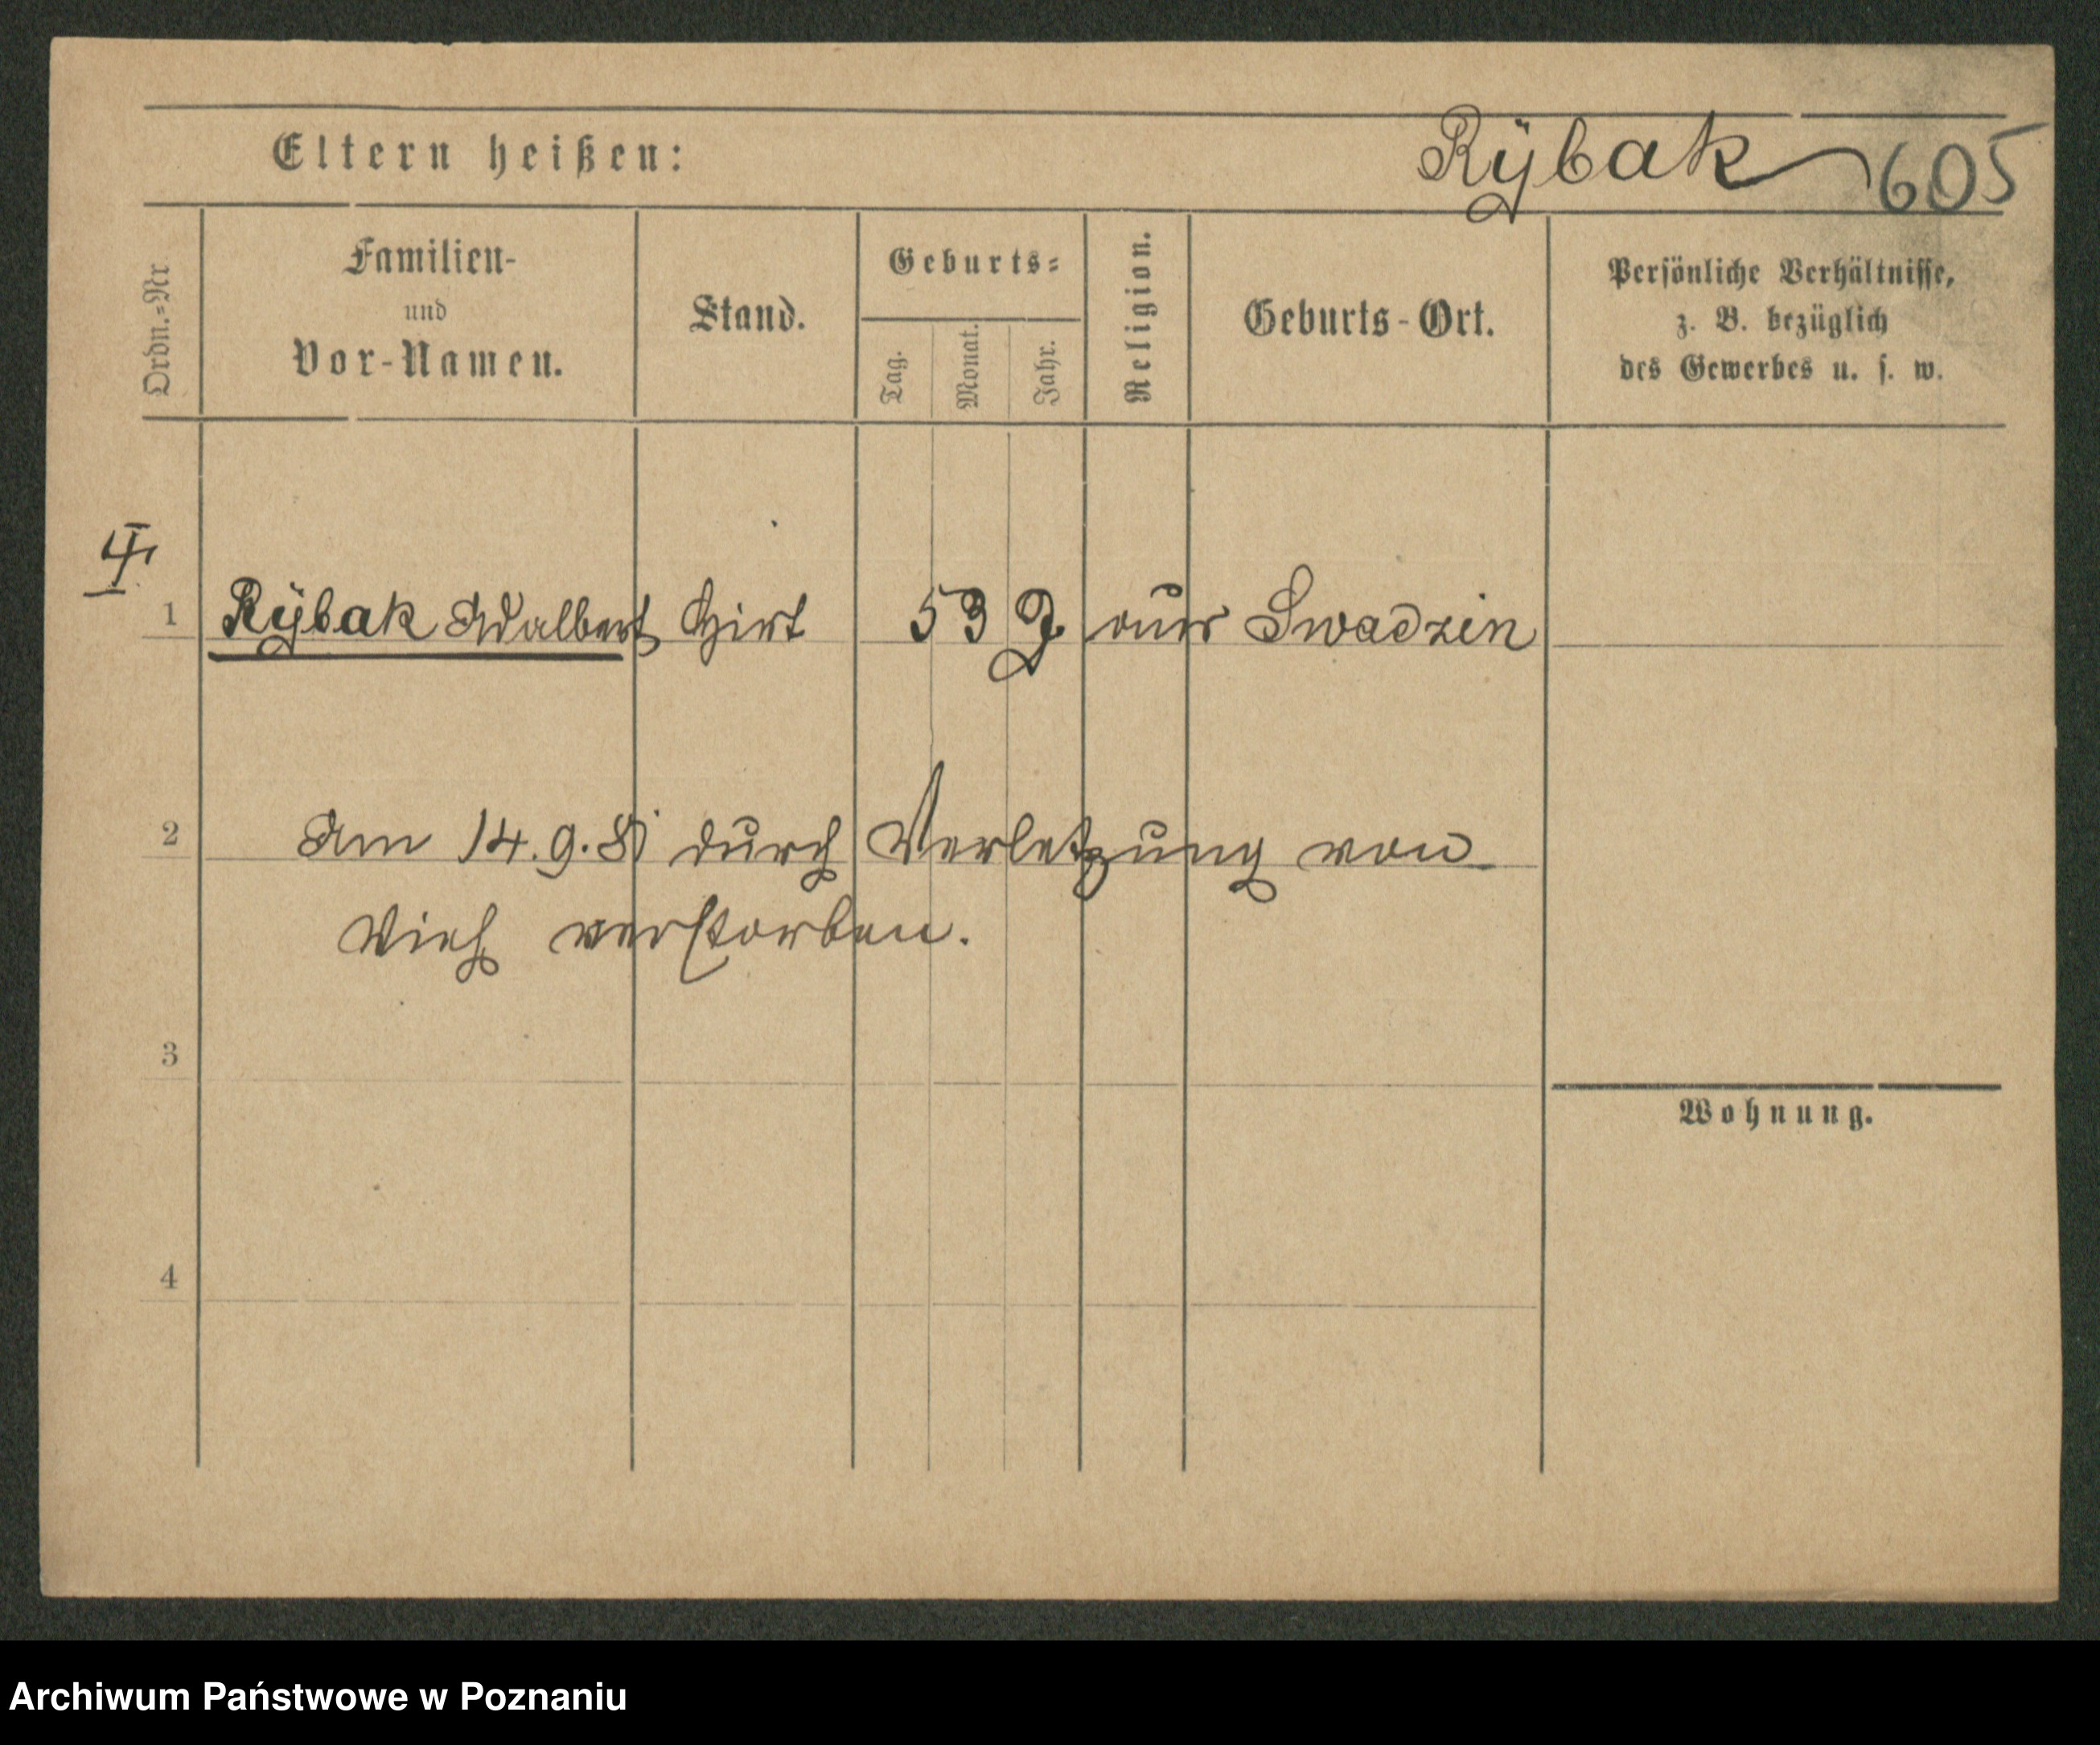 Eltern heißen:
Rÿbak 605
Ordn.=Nr
Familien-
und
Vor-Namen.
Stand.
Geburts=
Tag.
Monat.
Jahr.
Religion.
Geburts-Ort.
Persönliche Verhältnisse,
z. B. bezüglich
des Gewerbes u. s. w.
1 Rÿbak Adalbert Hirt 53 J aus Swadzin
2 Am 14.9.81 durch Verletzung von
Vieh verstorben.
3
Wohnung.
4
Archiwum Państwowe w Poznaniu